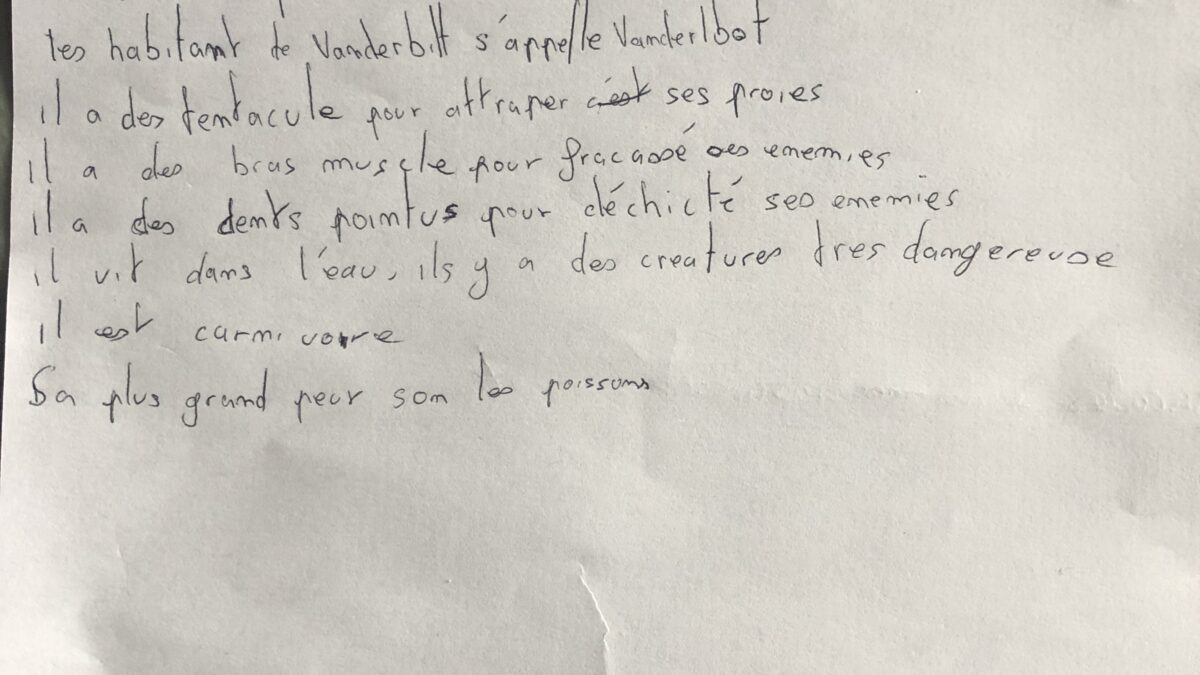 Les habitant de Vanderbilt s'appelle Vanderlbot
il a des tentacule pour attraper c'est ses proies
il a des bras muscle pour fracassé ses enemies
il a des dents pointus pour déchicté ses enemies
il vit dans l'eau, ils y a des creatures tres dangereuse
il est carnivore
Sa plus grand peur son les poissons